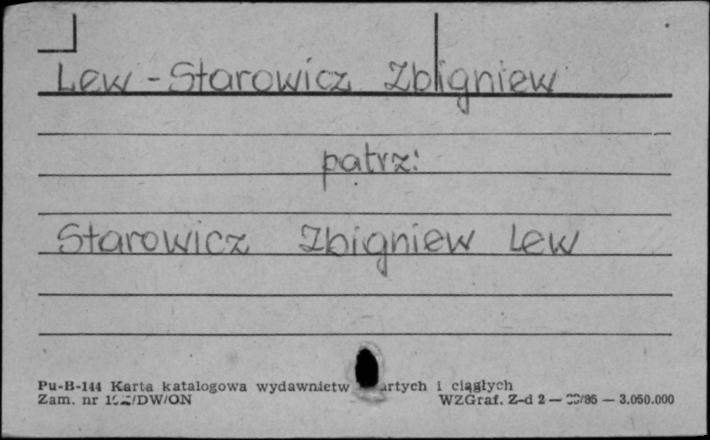 Lew-Starowicz Zbigniew
patrz:
Starowicz Zbigniew Lew
Pu-B-144 Karta katalogowa wydawnictw i ciągłych
Zam. nr WZGraf. Z-d 2 — 3.050.000